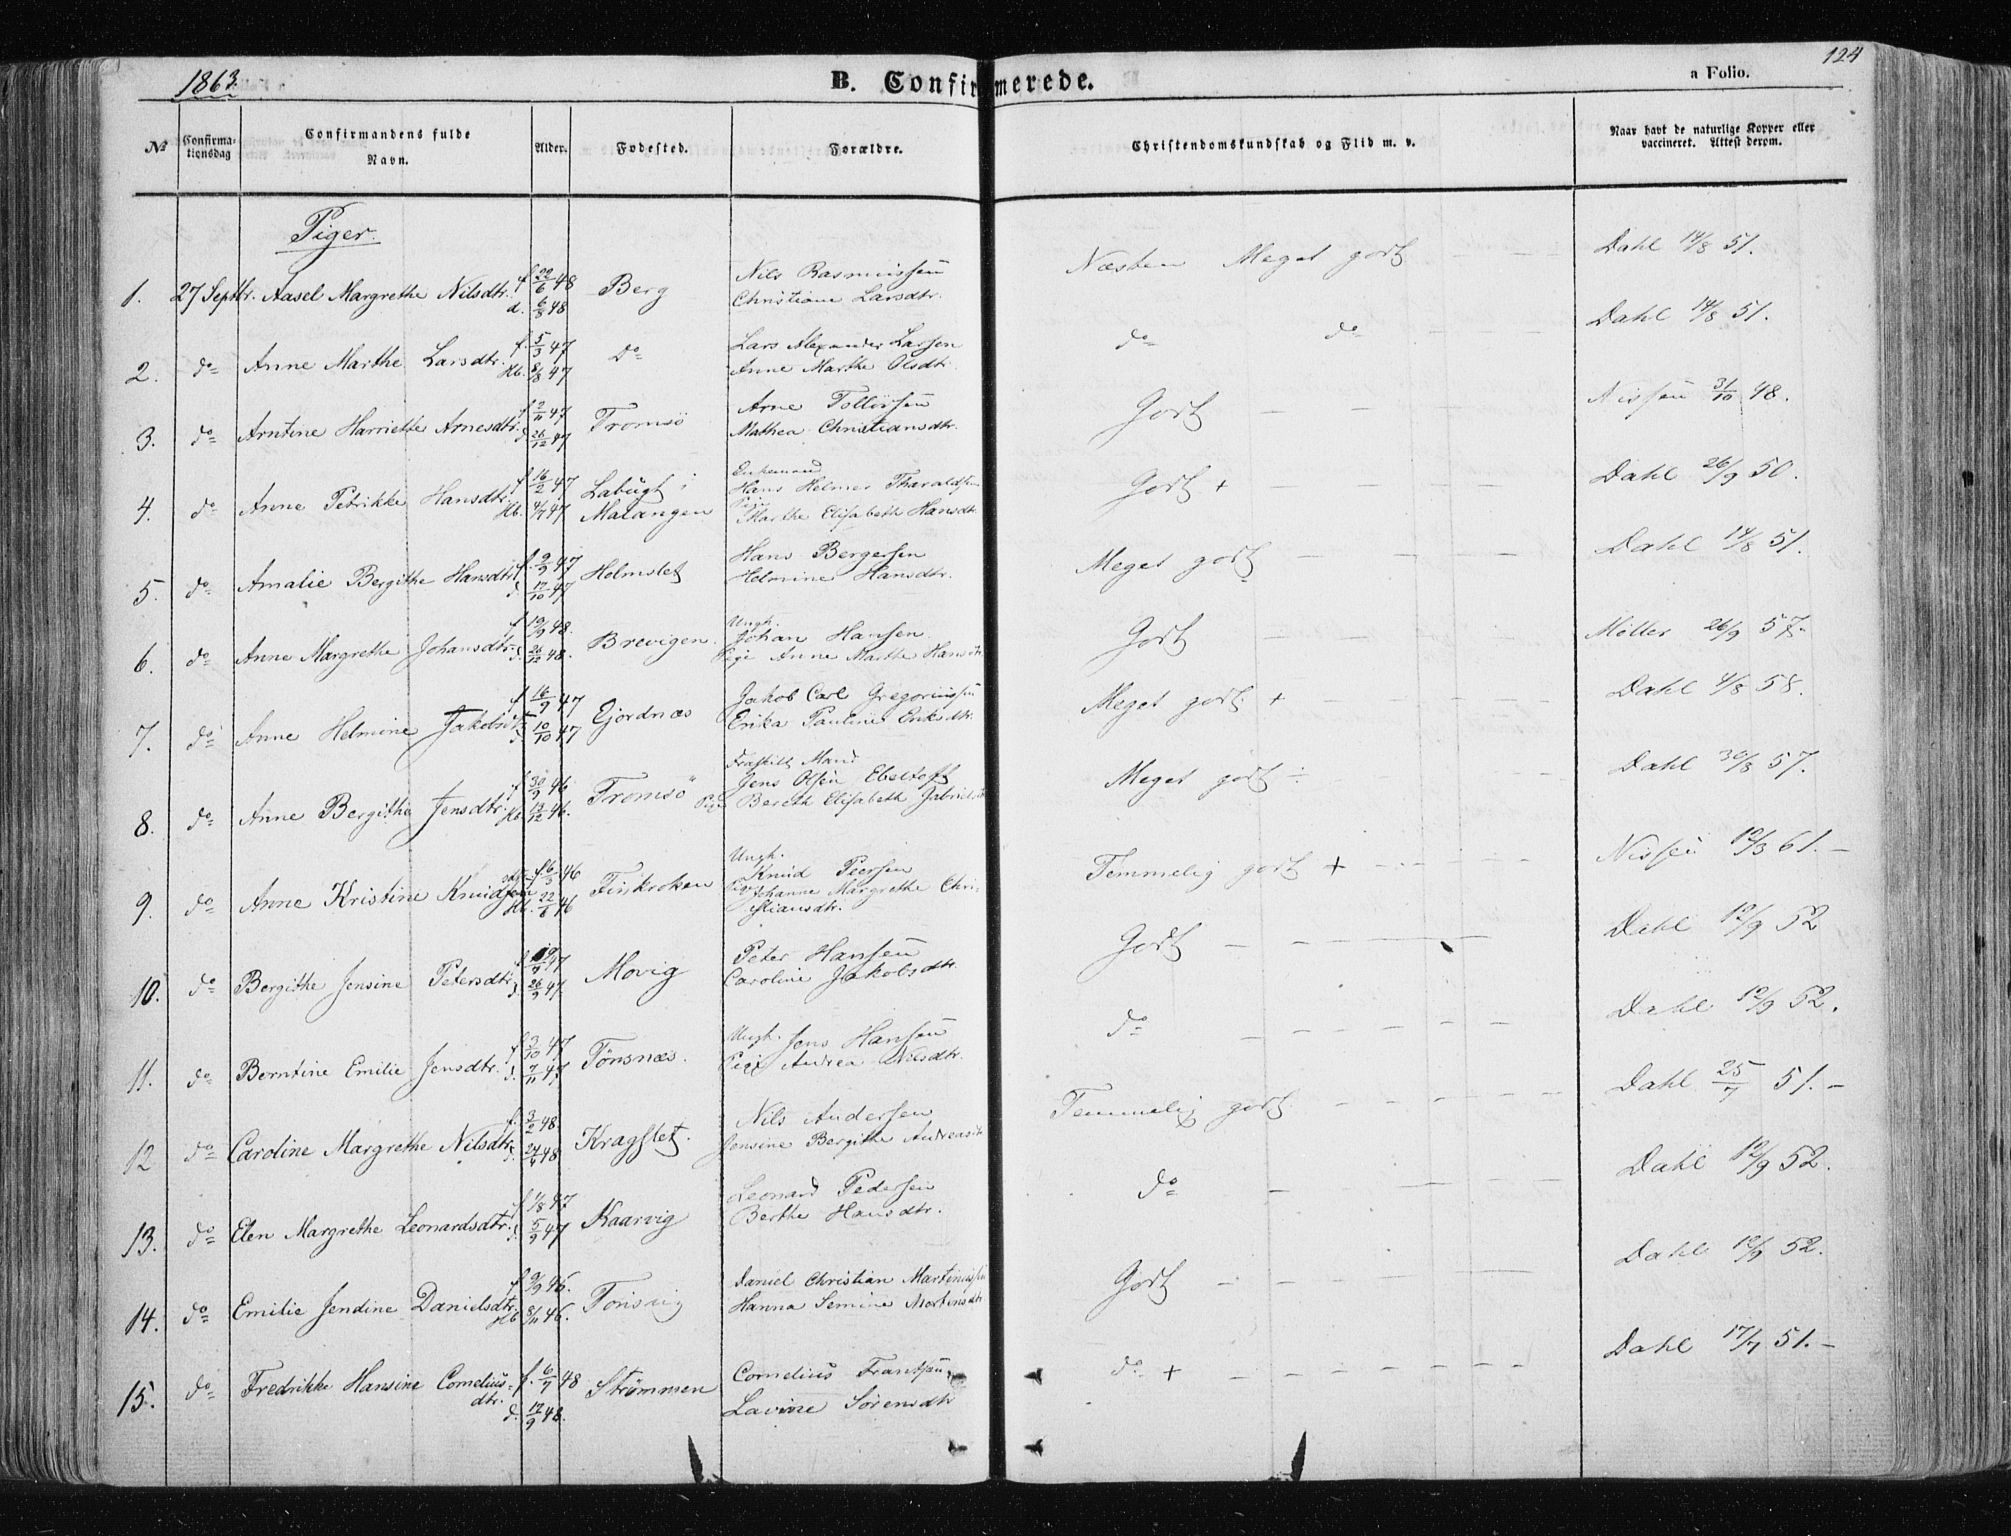 1863.
B. Confirmerede.
a Folio.
124
No
Confirma-
tionsdag
Confirmandens fulde
Navn.
Alder.
Fødested.
Forældre.
Christendomskundskab og Flid m. v.
Naar havt de naturlige Kopper eller
vaccineret. Attest derom.
Piger.
1. 27 Septbr. Aasel Margrethe Nilsdtr. f. 22/6 48 d. 6/8 48 Berg Nils Rasmussen Christiane Larsdtr. Næsten Meget godt Dahl 14/8 51.
2. do Anne Marthe Larsdtr. f. 5/3 47 Hb. 8/8 47 do Lars Alexander Larsen Anne Marthe Olsdtr. do do Dahl 14/8 51.
3. do Arntine Harriette Arnesdtr. f. 2/11 47 d. 26/12 47 Tromsö Arne Tollevsen Mathea Christiansdtr. Godt Nissen 31/10 48.
4. do Anne Petrikke Hansdtr. f. 16/2 47 Hb. 4/7 47 Labugt i Malangen Enkemand Hans Helmer Tharaldsen Pige Marthe Elisabeth Hansdtr. Godt + Dahl 26/9 50.
5. do Amalie Bergithe Hansdtr. f. 9/9 47 d. 17/10 47 Helmslet Hans Bergersen Helmine Hansdtr. Meget godt Dahl 14/8 51.
6. do Anne Margrethe Johansdtr. f. 19/9 48. d. 26/12 48. Brevigen. Ungk. Johan Hansen. Pige Anne Marthe Hansdtr. Godt Møller 26/9 57.
7. do Anne Helmine Jakobsdtr. f. 16/9 47 d. 10/10 47 Ejordnæs Jakob Carl Gregoriussen Erika Pauline Eriksdtr. Meget godt + Dahl 4/8 58.
8. do Anne Bergithe Jensdtr. f. 30/9 46 Hb. 13/12 46. Tromsö Fraskilt Mand Jens Olsen Ebeltoft Pige Bereth Elisabeth Gabrielsdtr. Meget godt ÷ Dahl 30/8 57.
9. do Anne Kristine Knudsen f. 6/3 46 Hb. 22/6 46 Finkroken Ungk. Knud Peersen Pige Johanne Margrethe Chri-
stiansdtr. Temmelig godt + Nissen 12/3 61.
10. do Bergithe Jensine Petersdtr. f. 19/7 47 d. 26/9 47. Movig Peter Hansen Caroline Jakobsdtr. Godt Dahl 12/9 52
11. do Berntine Emilie Jensdtr. f. 3/10 47 d. 7/11 47. Tönsnæs. Ungk. Jens Hansen Pige Andrea Nilsdtr. do Dahl 12/9 52.
12 do Caroline Margrethe Nilsdtr. f. 3/2 48. d. 24/4 48 Kragslet. Nils Andersen Jensine Bergithe Andreasdtr. Temmelig godt Dahl 25/7 51.
13. do Elen Margrethe Leonardsdtr. f. 1/8 47 d. 5/9 47 Kaarvig Leonard Pedersen Berthe Hansdtr. do Dahl 12/9 52.
14. do Emilie Jendine Danielsdtr. f. 9/9 46. Hb. 8/11 46. Tonsvig Daniel Christian Martinussen Hanna Semine Mortensdtr. Godt Dahl 12/9 52.
15. do Fredrikke Hansine Cornelius-
dtr. f. 6/7 48 d. 17/9 48. Strömmen Cornelius Frantsen Lavine Sörensdtr do + Dahl 17/7 51.